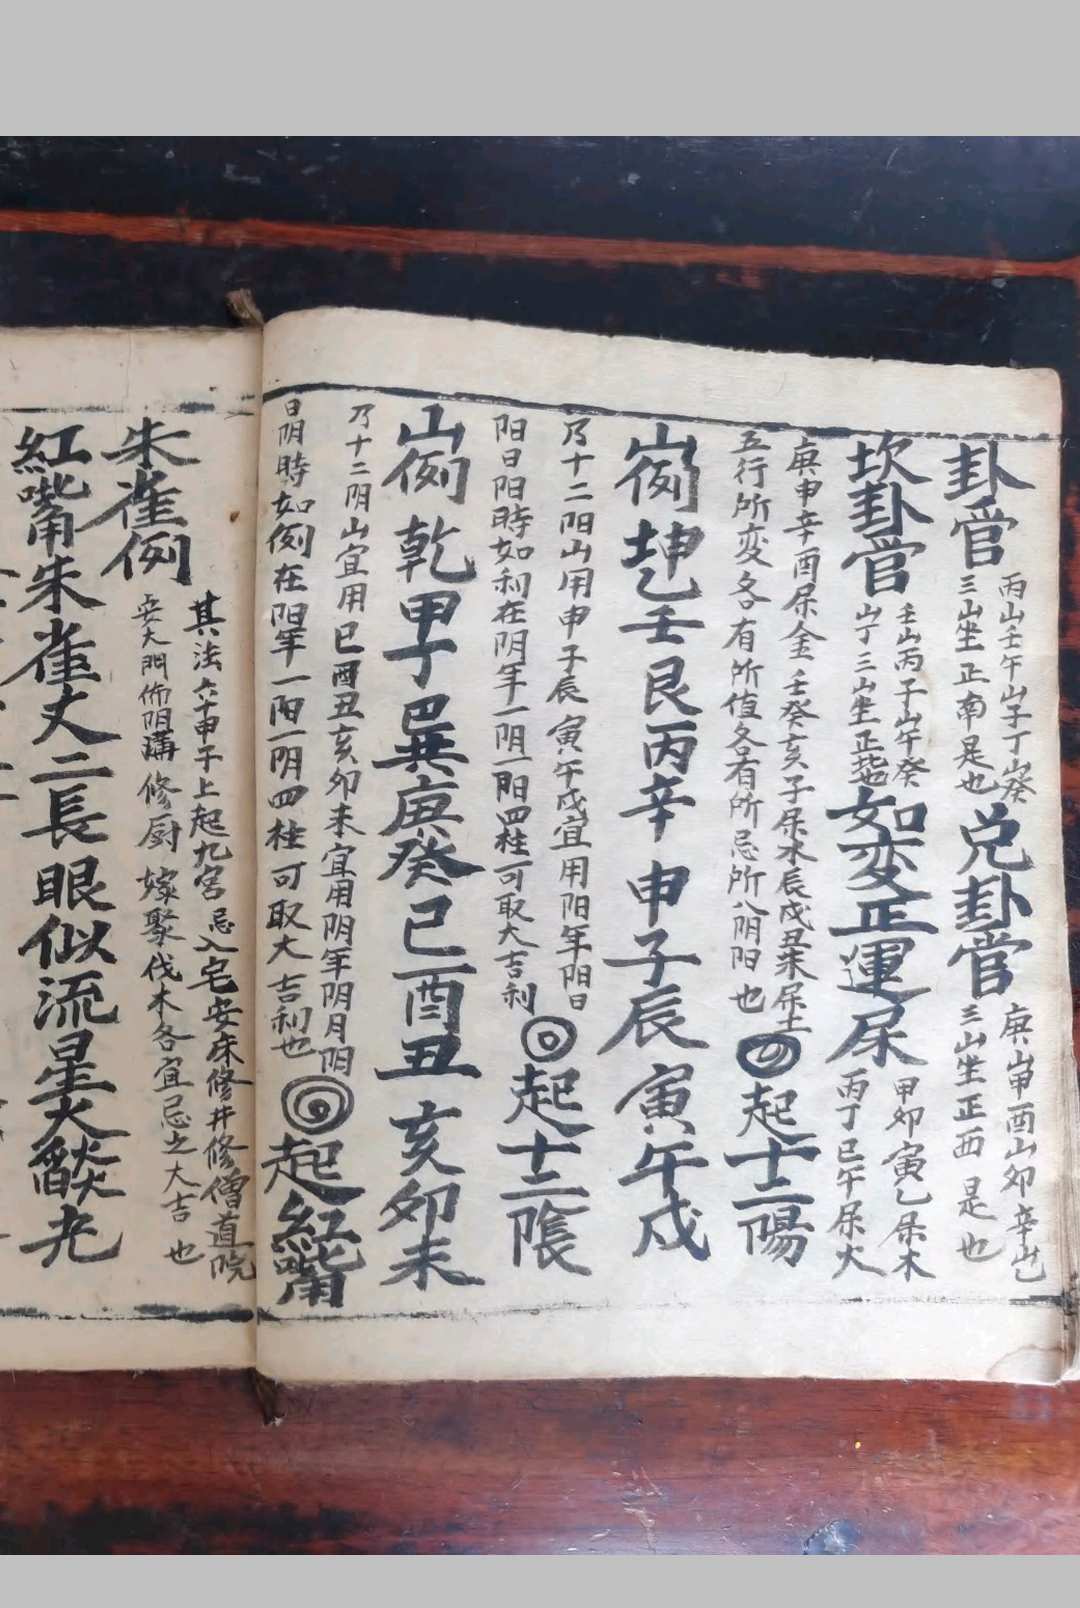 卦官
丙山壬午山子丁山癸
三山坐正南是也
兑卦官
庚山甲酉山卯辛山乙
三山坐正西是也
坎卦官
壬山丙子山午癸
山丁三山坐正北
如变正運屎
甲卯寅乙屎木
丙丁巳午屎火
庚申辛酉屎金壬癸亥子屎水辰戌丑未屎土
五行所变各有所值各有所忌所八阴阳也
起十二陽
山例坤乙壬艮丙辛申子辰寅午戌
乃十二阳山用申子辰寅午戌宜用阳年阳日
阳日阳時如利在阴年一阴一阳四柱可取大吉利
起十二陰
山例乾甲子巳巽庚癸巳酉丑亥卯未
乃十二阴山宜用巳酉丑亥卯未宜用阴年阴月阴
日阴時如例在阳年一阳一阴四柱可取大吉利也
起紅嘴
朱雀例
其法六十甲子上起九宫忌入宅安床修井修僧道院
安大門佈阴溝修厨嫁娶伐木各宜忌之大吉也
紅嘴朱雀丈二長眼似流星火燄光